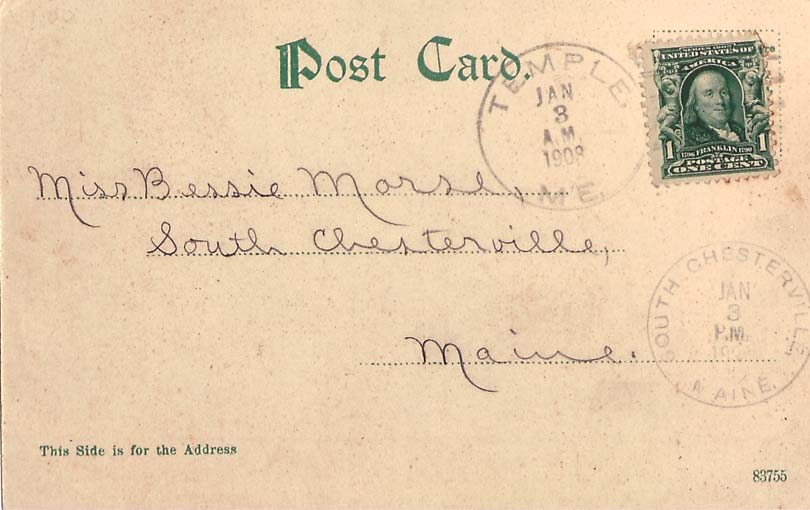 Post Card.
TEMPLE,
JAN
3
A.M.
1908
ME.
SERIES 1902
UNITED STATES OF
AMERICA
1 1
1706 FRANKLIN 1790
POSTAGE
ONE CENT
Miss Bessie Morse,
South Chesterville,
Maine.
SOUTH CHESTERVILLE
JAN
3
P.M.
MAINE.
This Side is for the Address
83755